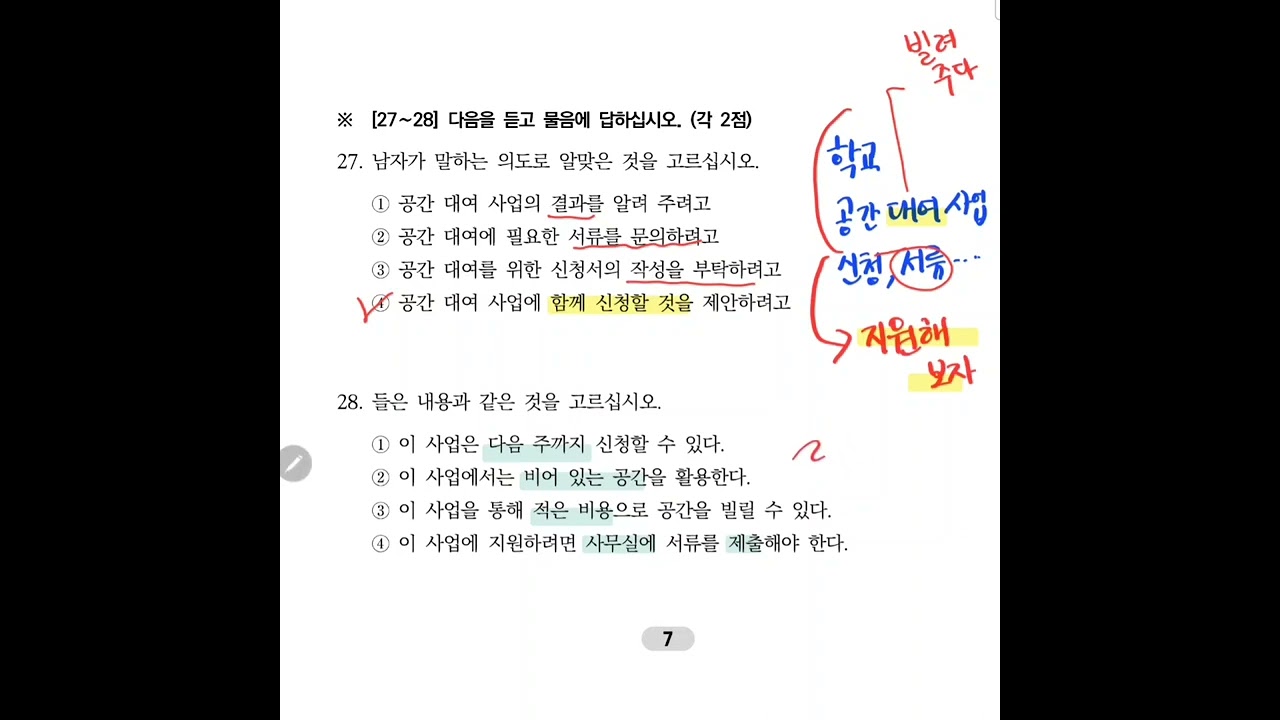 ※ [27~28] 다음을 듣고 물음에 답하십시오. (각 2점)
27. 남자가 말하는 의도로 알맞은 것을 고르십시오.
① 공간 대여 사업의 결과를 알려 주려고
② 공간 대여에 필요한 서류를 문의하려고
③ 공간 대여를 위한 신청서의 작성을 부탁하려고
④ 공간 대여 사업에 함께 신청할 것을 제안하려고
빌려
주다
학교
공간 대여 사업
신청, 서류...
지원해
보자
28. 들은 내용과 같은 것을 고르십시오.
① 이 사업은 다음 주까지 신청할 수 있다.
② 이 사업에서는 비어 있는 공간을 활용한다.
③ 이 사업을 통해 적은 비용으로 공간을 빌릴 수 있다.
④ 이 사업에 지원하려면 사무실에 서류를 제출해야 한다.
7